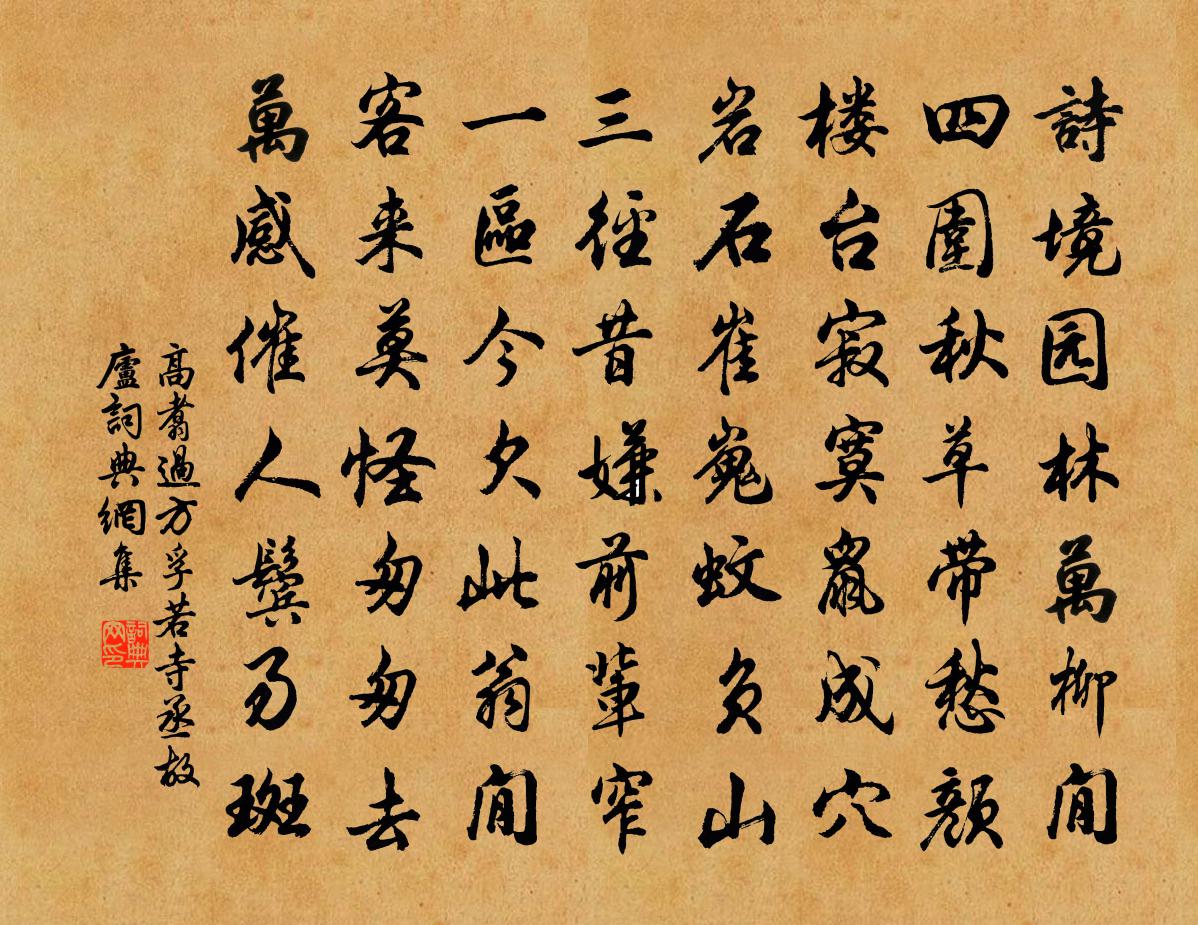 詩境园林萬柳间
四圍秋草带愁颜
楼台寂寞鼠成穴
岩石崔嵬蚊负山
三徑昔嫌前辈窄
一區今欠此翁间
客来莫怪匆匆去
萬感催人鬓易斑
高翥過方孚若寺丞故
廬詞典網集
詞典
网印